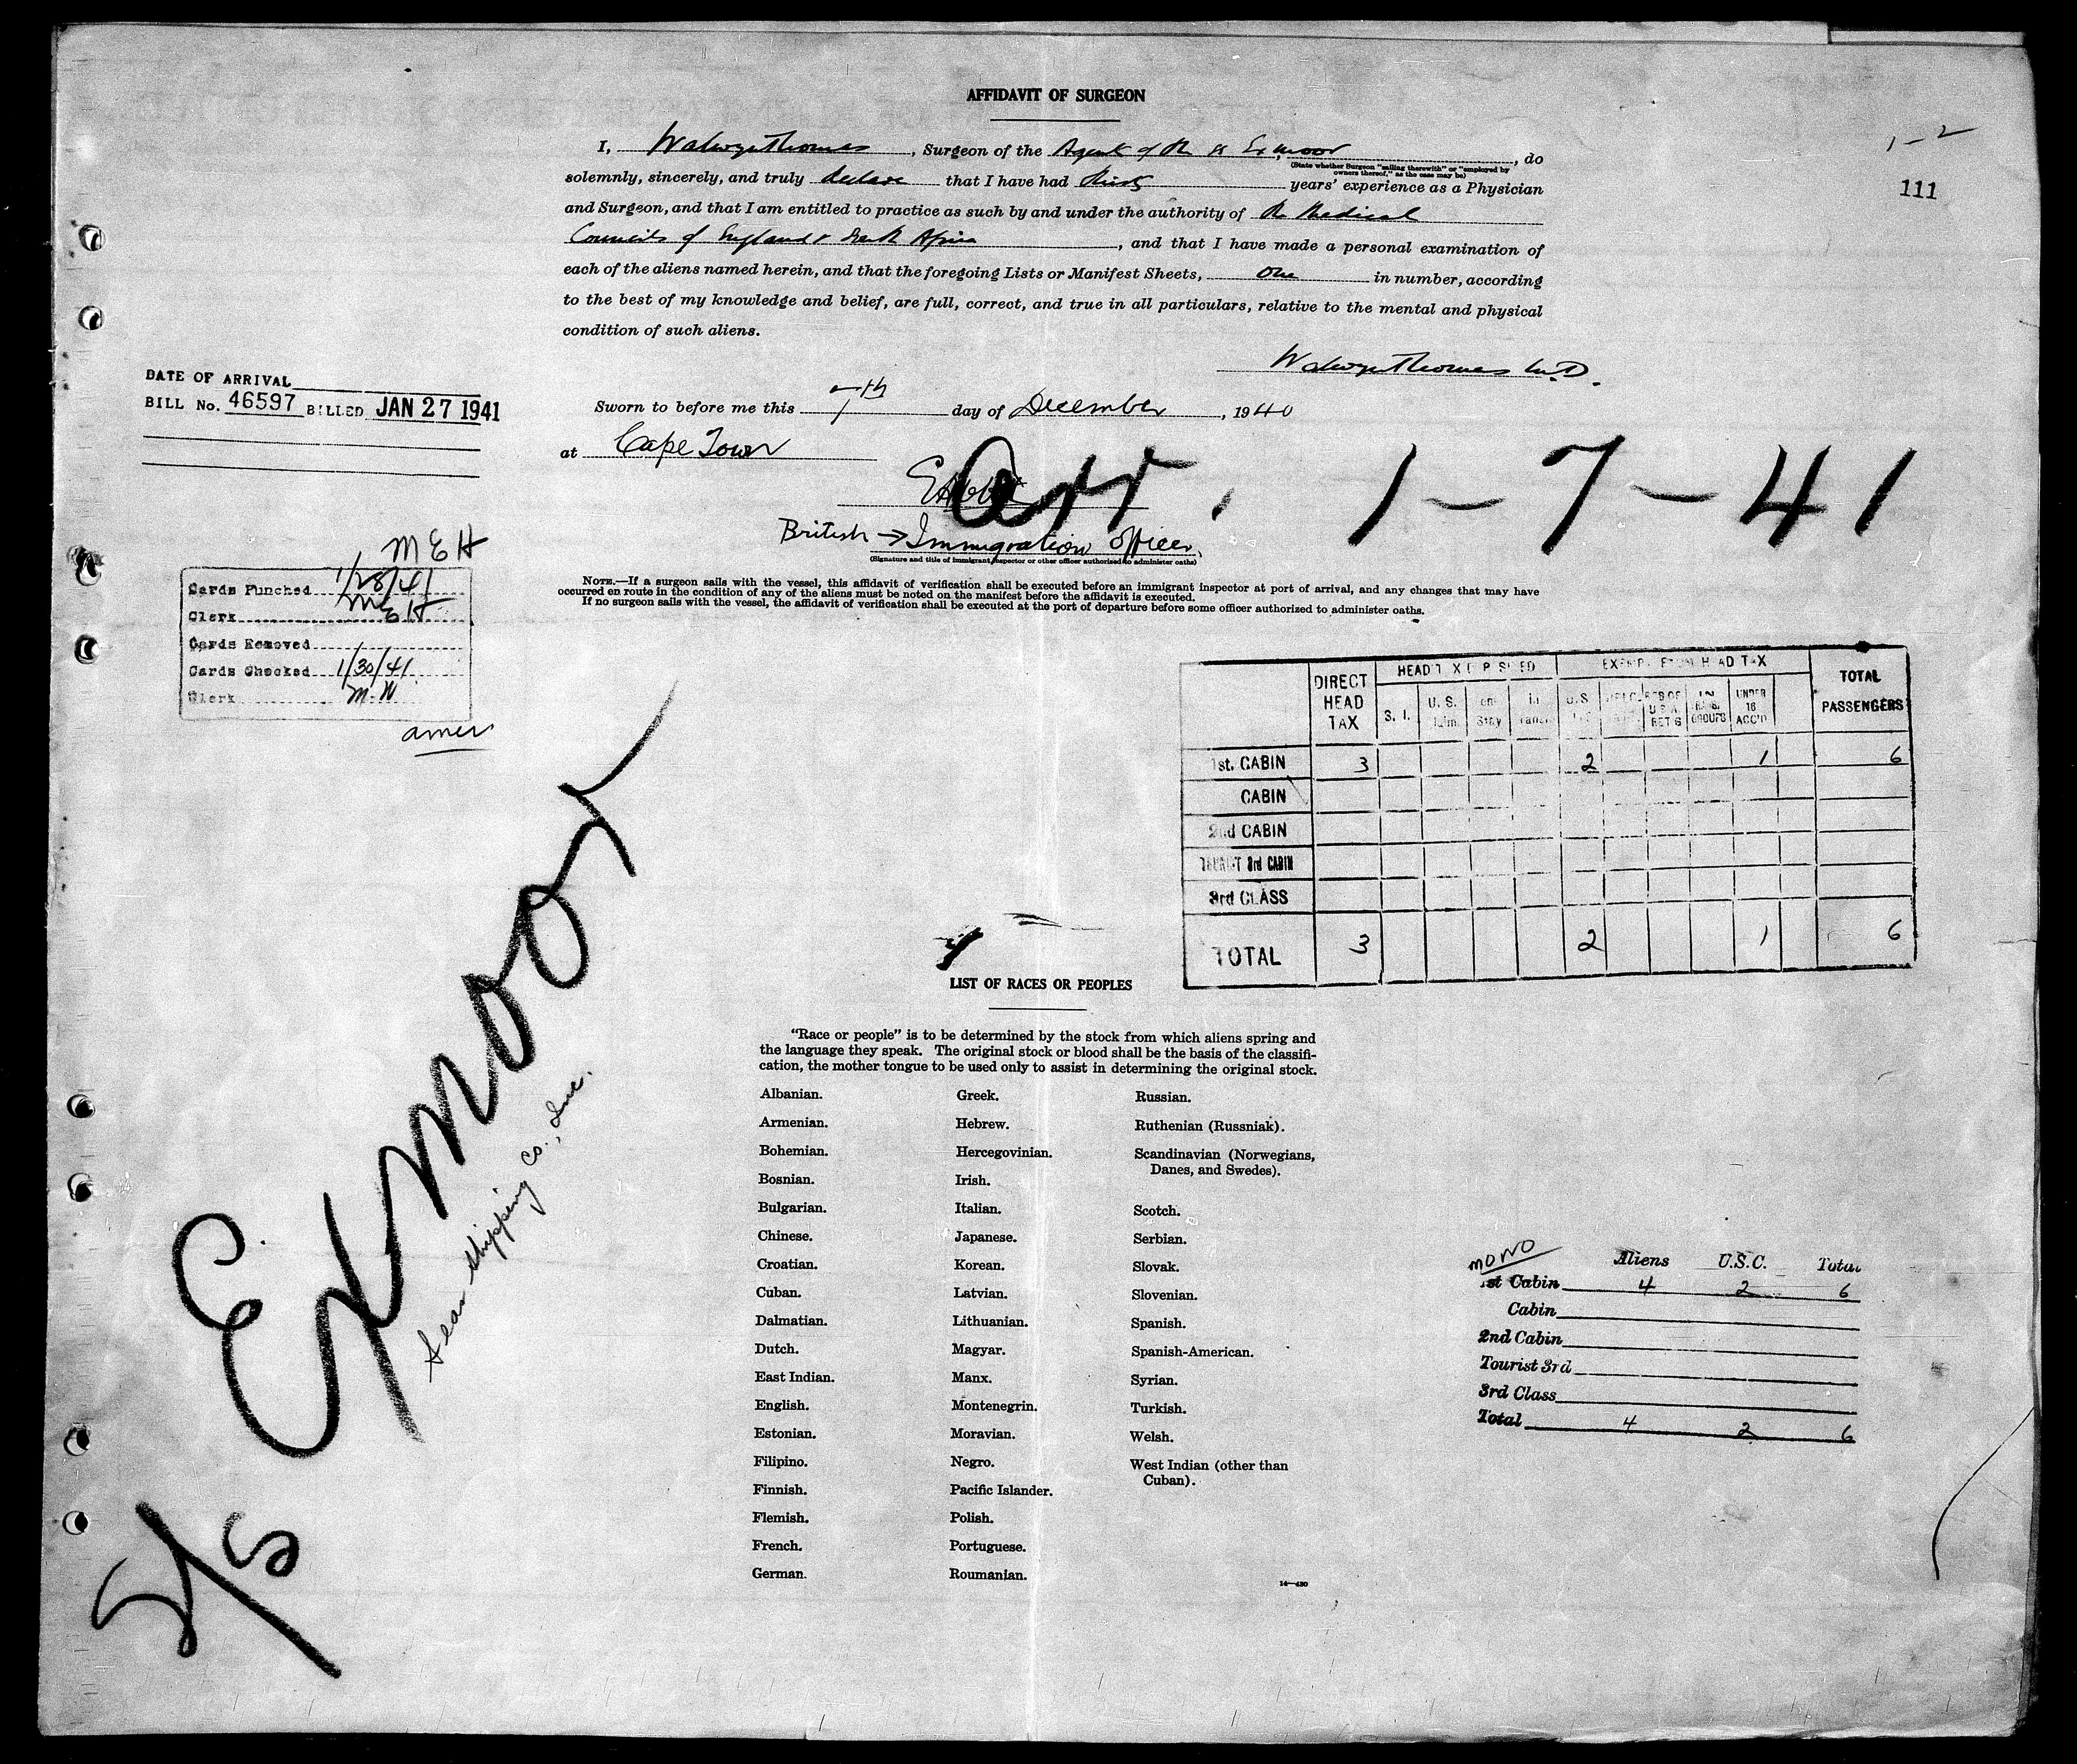 AFFIDAVIT OF SURGEON
1-2
111
I, Walwyn Thomas, Surgeon of the Agent of the ss Exmoor, do
(State whether Surgeon "sailing therewith" or "employed by
owners thereof," as the case may be)
solemnly, sincerely, and truly declare that I have had thirty years' experience as a Physician
and Surgeon, and that I am entitled to practice as such by and under the authority of the Medical
Councils of England & South Africa, and that I have made a personal examination of
each of the aliens named herein, and that the foregoing Lists or Manifest Sheets, one in number, according
to the best of my knowledge and belief, are full, correct, and true in all particulars, relative to the mental and physical
condition of such aliens.
Walwyn Thomas M.D.
DATE OF ARRIVAL
BILL No. 46597 BILLED JAN 27 1941
Sworn to before me this 7th day of December, 1940
at Cape Town
arr. 1-7-41
British → Immigration Officer
(Signature and title of immigrant inspector or other officer authorized to administer oaths)
NOTE.—If a surgeon sails with the vessel, this affidavit of verification shall be executed before an immigrant inspector at port of arrival, and any changes that may have
occurred en route in the condition of any of the aliens must be noted on the manifest before the affidavit is executed.
If no surgeon sails with the vessel, the affidavit of verification shall be executed at the port of departure before some officer authorized to administer oaths.
MEH
Cards Punched 1/28/41
Clerk MEH
Cards Removed
Cards Checked 1/30/41
Clerk M.W
amer
DIRECT HEAD TAX
EXEMPT FROM HEAD TAX
TOTAL PASSENGERS
S. I.
U. S.
UNDER 16 ACC'D
1st. CABIN 3 2 1 6
CABIN
2nd CABIN
TOURIST 3rd CABIN
3rd CLASS
TOTAL 3 2 1 6
S/S Exmoor
Sean Shipping Co., Inc.
LIST OF RACES OR PEOPLES
"Race or people" is to be determined by the stock from which aliens spring and
the language they speak. The original stock or blood shall be the basis of the classifi-
cation, the mother tongue to be used only to assist in determining the original stock.
Albanian.
Armenian.
Bohemian.
Bosnian.
Bulgarian.
Chinese.
Croatian.
Cuban.
Dalmatian.
Dutch.
East Indian.
English.
Estonian.
Filipino.
Finnish.
Flemish.
French.
German.
Greek.
Hebrew.
Hercegovinian.
Irish.
Italian.
Japanese.
Korean.
Latvian.
Lithuanian.
Magyar.
Manx.
Montenegrin.
Moravian.
Negro.
Pacific Islander.
Polish.
Portuguese.
Roumanian.
Russian.
Ruthenian (Russniak).
Scandinavian (Norwegians,
Danes, and Swedes).
Scotch.
Serbian.
Slovak.
Slovenian.
Spanish.
Spanish-American.
Syrian.
Turkish.
Welsh.
West Indian (other than
Cuban).
14—430
mono Aliens U.S.C. Total
1st Cabin 4 2 6
Cabin
2nd Cabin
Tourist 3rd
3rd Class
Total 4 2 6